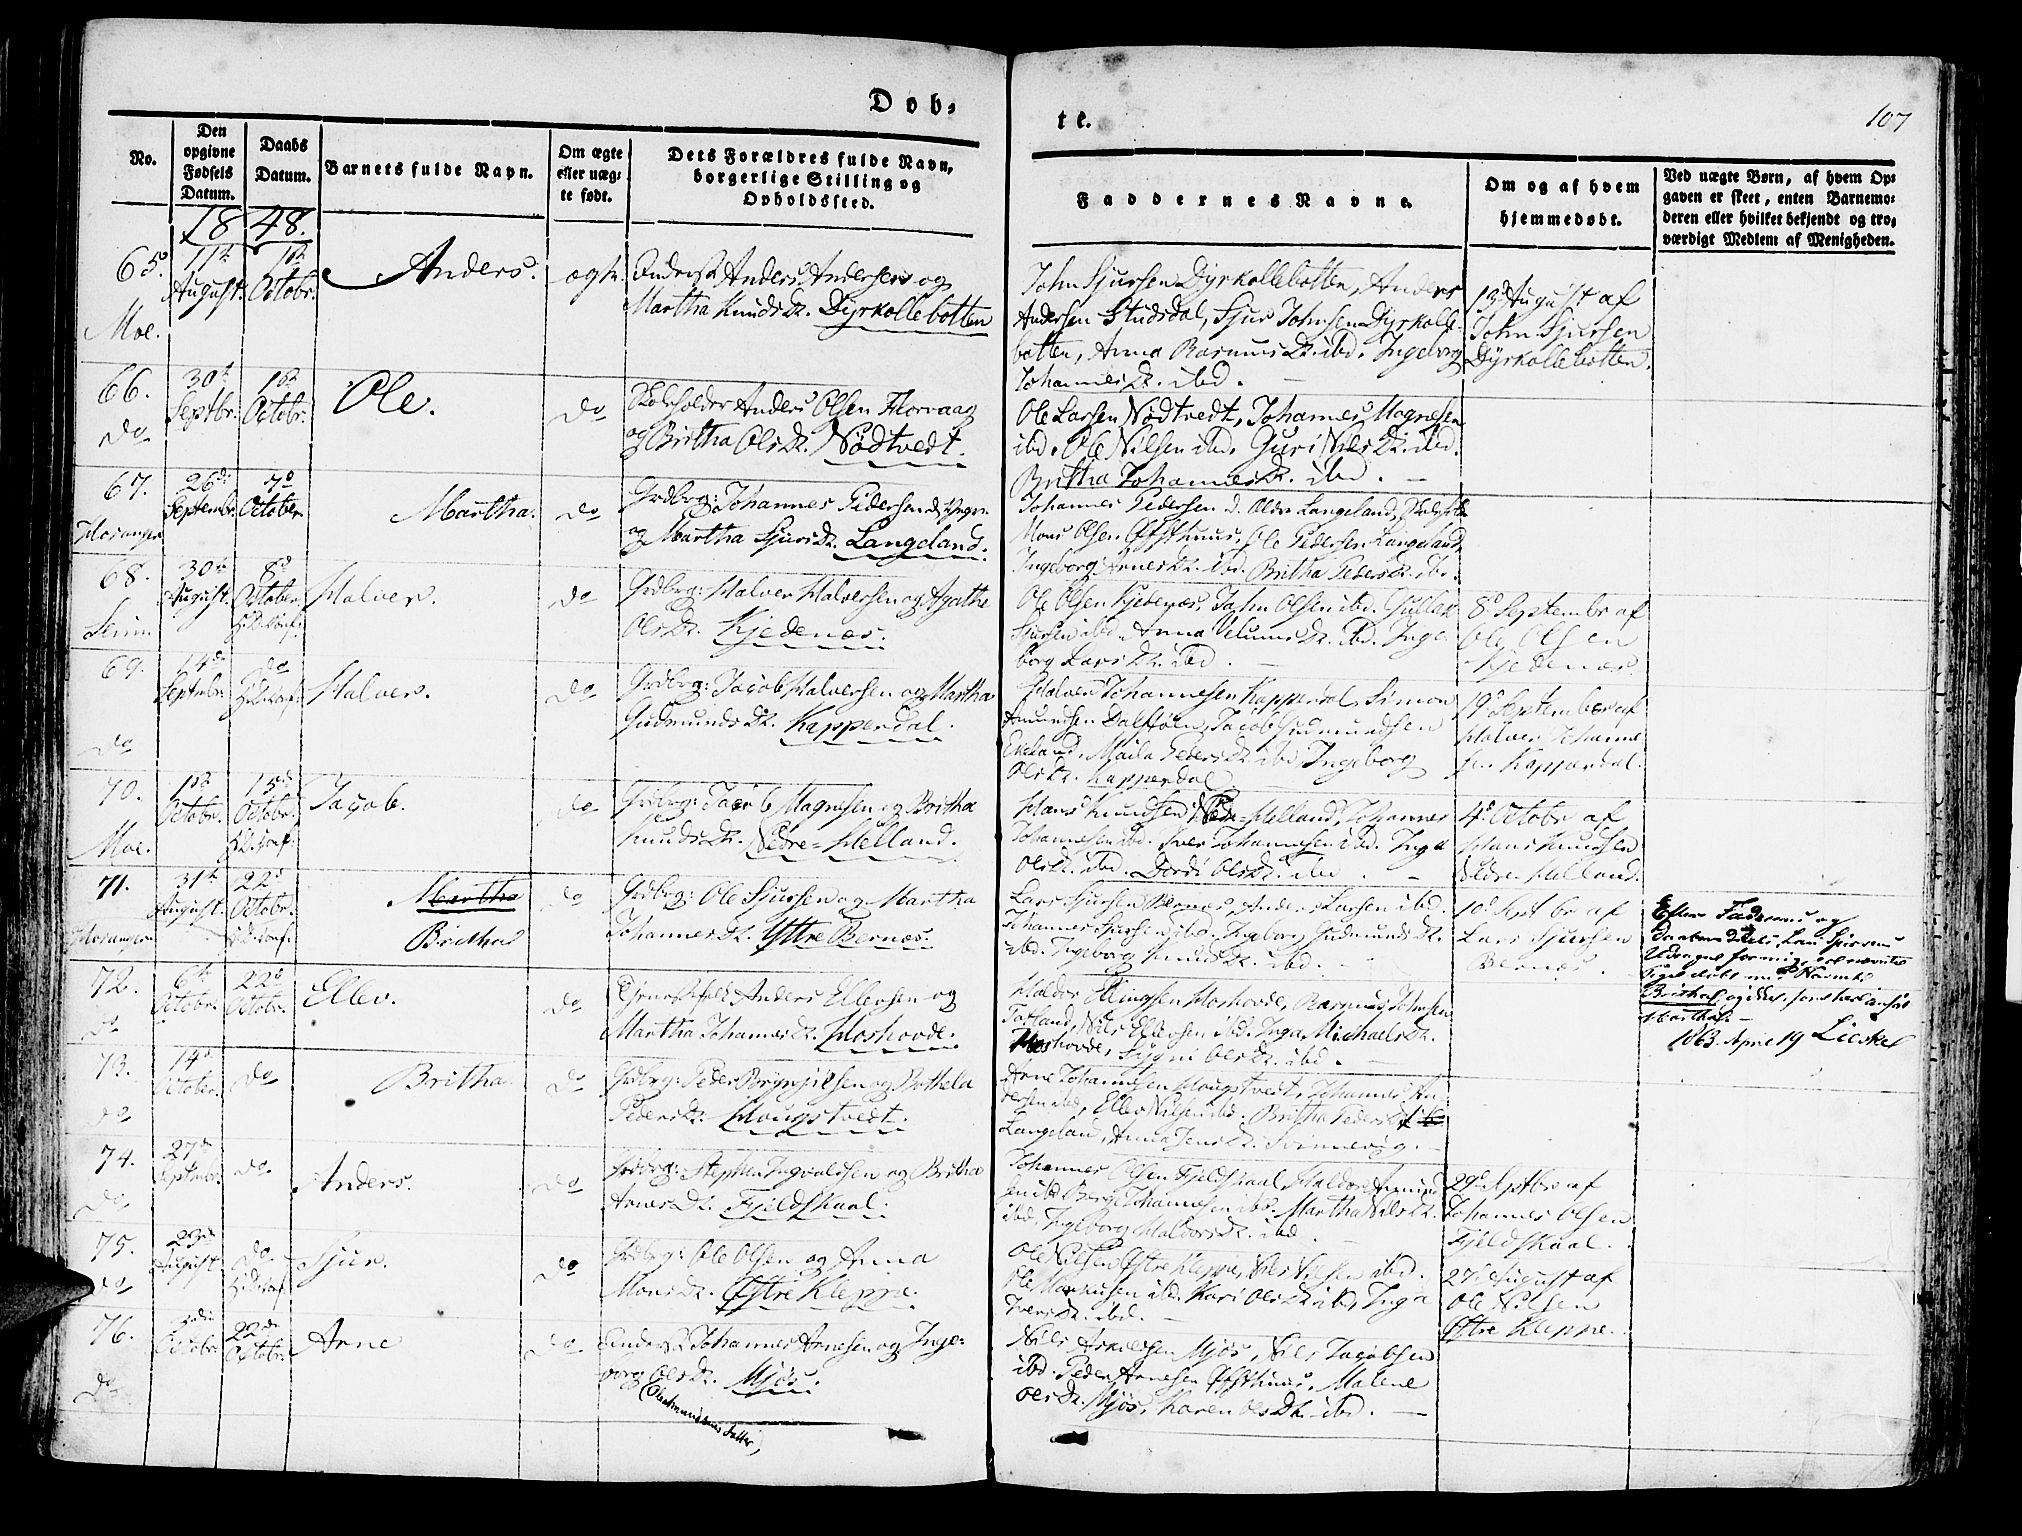 Døb-
te.
107
No.
Den
opgivne
Fødsels
Datum.
Daabs
Datum.
Barnets fulde Navn.
Om ægte
eller uæg-
te født.
Dets Forældres fulde Navn,
borgerlige Stilling og
Opholdssted.
Faddernes Navne.
Om og af hvem
hjemmedøbt.
Ved uægte Børn, af hvem Op-
gaven er skeet, enten Barnemo-
deren eller hvilket bekjendt og tro-
værdigt Medlem af Menigheden.
1848.
65.
Moe.
11te
August.
1ste
Octobr.
Anders.
ægte.
Anders Andersen og
Martha Knudsdr. Dyrkollebotten
John Sjursen Dyrkollebotten, Anders
Andersen Studsdal, Sjur Johnsen Dyrkolle-
botten, Anna Rasmusdr. ibd. Ingeborg
Johannesdr. ibd.
13de August af
John Sjursen
Dyrkollebotten.
66.
do
30te
Septbr.
1ste
Octobr.
Ole.
do
Skoleholder Anders Olsen Florvaag
og Britha Olsdr. Nødtvedt.
Ole Larsen Nødtvedt, Johannes Magnesen
ibd. Ole Nilsen ibd. Guri Nilsdr. ibd.
Britha Johannesdr. ibd.
67.
Hosanger
26de
Septembr.
7de
October
Martha.
do
Grdbrg: Johannes Pedersen d. Yngre
og Martha Sjursdr. Langeland.
Johannes Pedersen d. Ældre Langeland,
Mons Olsen Øfsthuus, Ole Pedersen Langeland,
Ingeborg Arnesdr. ibd. Britha Pedersdr. ibd.
68.
Seim
30te
August.
8de
October
H.D. Conf.
Halver.
do
Grdbrg: Halver Halversen og Agathe
Olsdr. Kjedenæs.
Ole Olsen Kjedenæs, John Olsen ibd. Gullak
Sjursen ibd. Anna Velumsdr. ibd. Inge
borg Larsdr. ibd.
8de Septembr af
Ole Olsen
Kjedenæs.
69.
do
14de
Septembr.
do
H.D. Conf.
Halver.
do
Grdbrg: Jacob Halversen og Martha
Gudmundsdr. Kapperdal.
Halver Johannesen Kapperdal, Simon
Amundsen Dalstøen, Jacob Gudmundsen
Eveland, Pedersdr. ibd, Ingeborg
Olsdr. Kapperdal
19de September af
Halver Johanne
sen Kapperdal.
70.
Moe.
1ste
Octobr.
15de
Octobr.
H.D. Conf.
Jacob.
do
Grdbrg: Jacob Magnesen og Britha
Knudsdr. Nedre-Helland.
Hans Knudsen Nedre-Helland, Johannes
Johannesen ibd. Iver Johannesen ibd. Inga
Olsdr. ibd. Dordi Olsdr. ibd.
4de Octobr af
Hans Knudsen
Nedre-Helland.
71.
Hosanger
31te
August.
22de
Octobr.
H.D. Conf.
Martha
Britha
do
Grdbrg: Ole Sjursen og Martha
Johannesdr. Yttre Bernæs.
Lars Sjursen Bernæs, Anders Larsen ibd.
Johannes Sjursen ibd. Ingeborg Gudmundsdr.
ibd. Ingeborg Knudsdr. ibd.
10de Septbr af
Lars Sjursen
Bernæs.
Efter Faderens og
Lars Sjursens
Udsagn for mig, er nævnte
Pige døbt med Navnet
Britha og ikke, som her anført
Martha.
1863 April 19 Lieske
72.
do
6te
Octobr.
22de
Octobr.
Ellev.
do
Tjenestfolk Anders Ellevsen og
Martha Johannesdr. Hoshovde.
Haldor Ellingsen Hoshovde, Rasmus Johnsen
Totland, Nils Ellevsen ibd. Inga Michaelsdr.
Hoshovde, Signi Olsdr. ibd.
73.
do
14de
October.
do
Britha.
do
Grdbrg: Peder Brynjelsen og Bothela
Pedersdr. Hougstvedt.
Arne Johannesen Hougstvedt, Johannes An-
dersen ibd, Ellev Nilsen ibd. Britha Pedersdr.
Langeland, Anna Jensdr. Svinnevog.
74.
do
27de
Septembr.
do.
Anders.
do
Grdbrg: Stephen Ingvaldsen og Britha
Arnesdr. Fjeldskaal.
Johannes Olsen Fjeldskaal, Haldor Amund
sen ibd. Berge Johannesen ibd. Martha Nilsdr.
ibd. Ingeborg Haldorsdr. ibd.
29de Septbr af
Johannes Olsen
Fjeldskaal.
75.
do
23de
August
do
H.D. Conf.
Sjur.
do
Grdbrg: Ole Olsen og Anna
Monsdr. Østre Kleppe.
Ole Nilsen Østre Kleppe, Nils Nilsen ibd.
Ole Markusen ibd. Kari Olsdr. ibd, Inga
Iversdr. ibd.
27de August af
Ole Nilsen
Østre Kleppe.
76.
do
3die
Octobr.
22de
Octobr.
Arne
do
Johannes Arnesen og Inge-
borg Olsdr. Mjøs.
Nils Askeldsen Mjøs, Nils Jacobsen
ibd. Peder Arnesen Øfsthuus, Malene
Olsdr. Mjøs, Karen Olsdr. ibd.